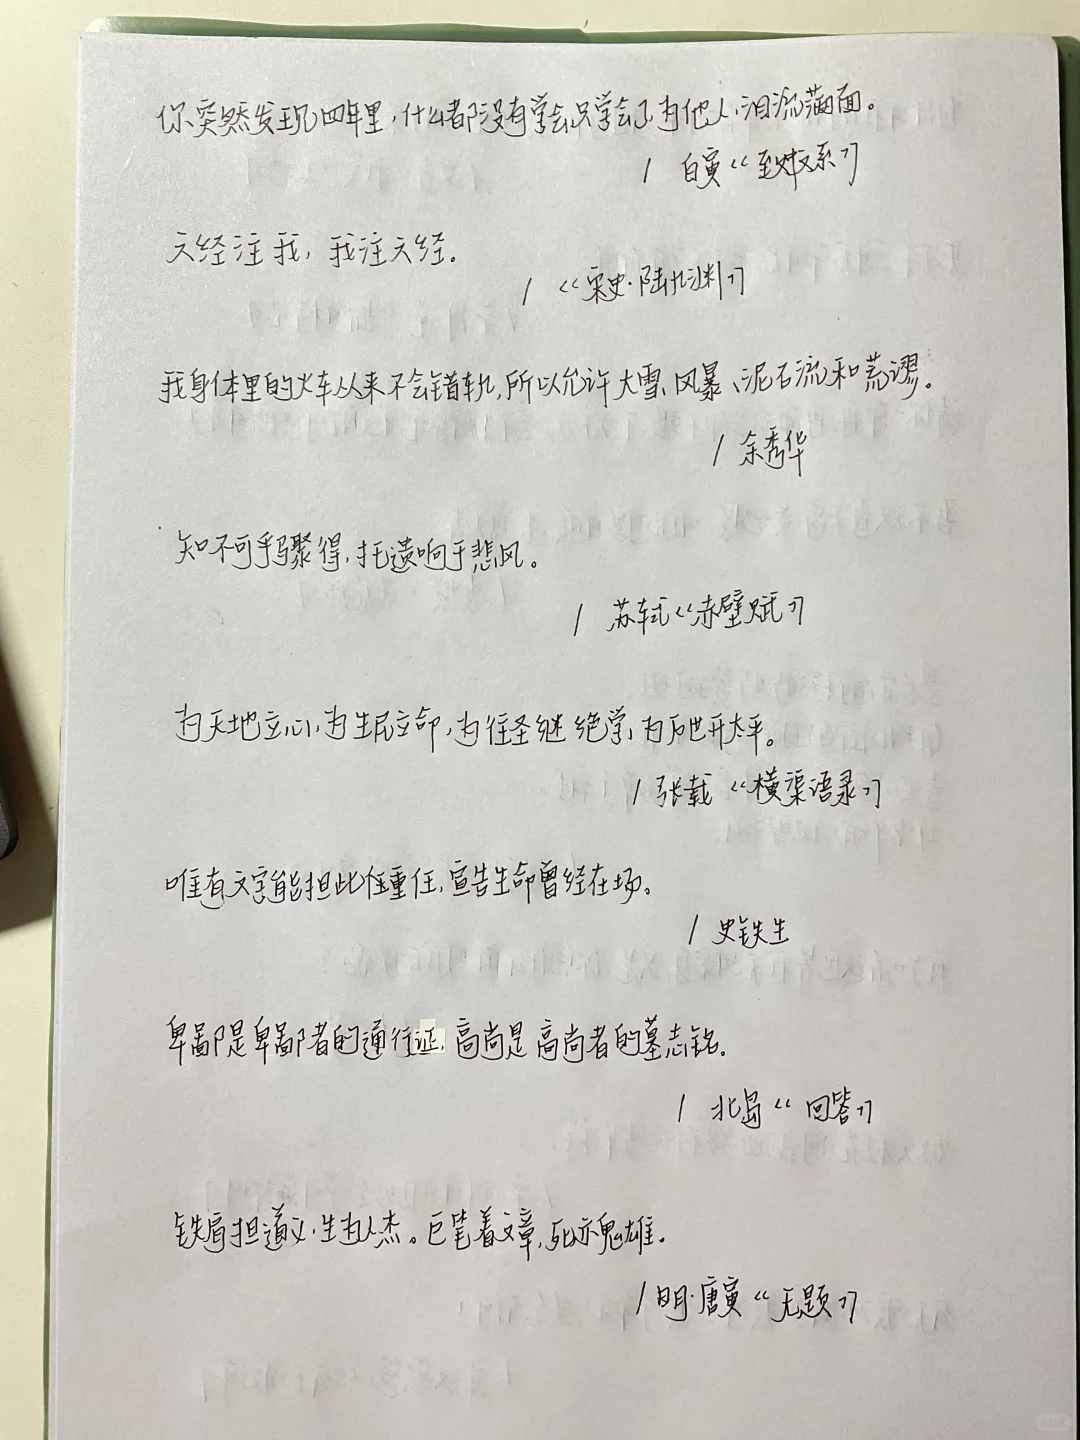 你突然发现四年里，什么都没有学会只学会了为他人，泪流满面。
/ 白寅《致中文系》
六经注我，我注六经。
/《宋史·陆九渊》
我身体里的火车从来不会错轨，所以允许大雪、风暴、泥石流和荒谬。
/ 余秀华
知不可乎骤得，托遗响于悲风。
/ 苏轼《赤壁赋》
为天地立心，为生民立命，为往圣继绝学，为万世开太平。
/ 张载《横渠语录》
唯有文字能担此重任，宣告生命曾经在场。
/ 史铁生
卑鄙是卑鄙者的通行证，高尚是高尚者的墓志铭。
/ 北岛《回答》
铁肩担道义，生为人杰。巨笔着文章，死亦鬼雄。
/ 明·唐寅《无题》